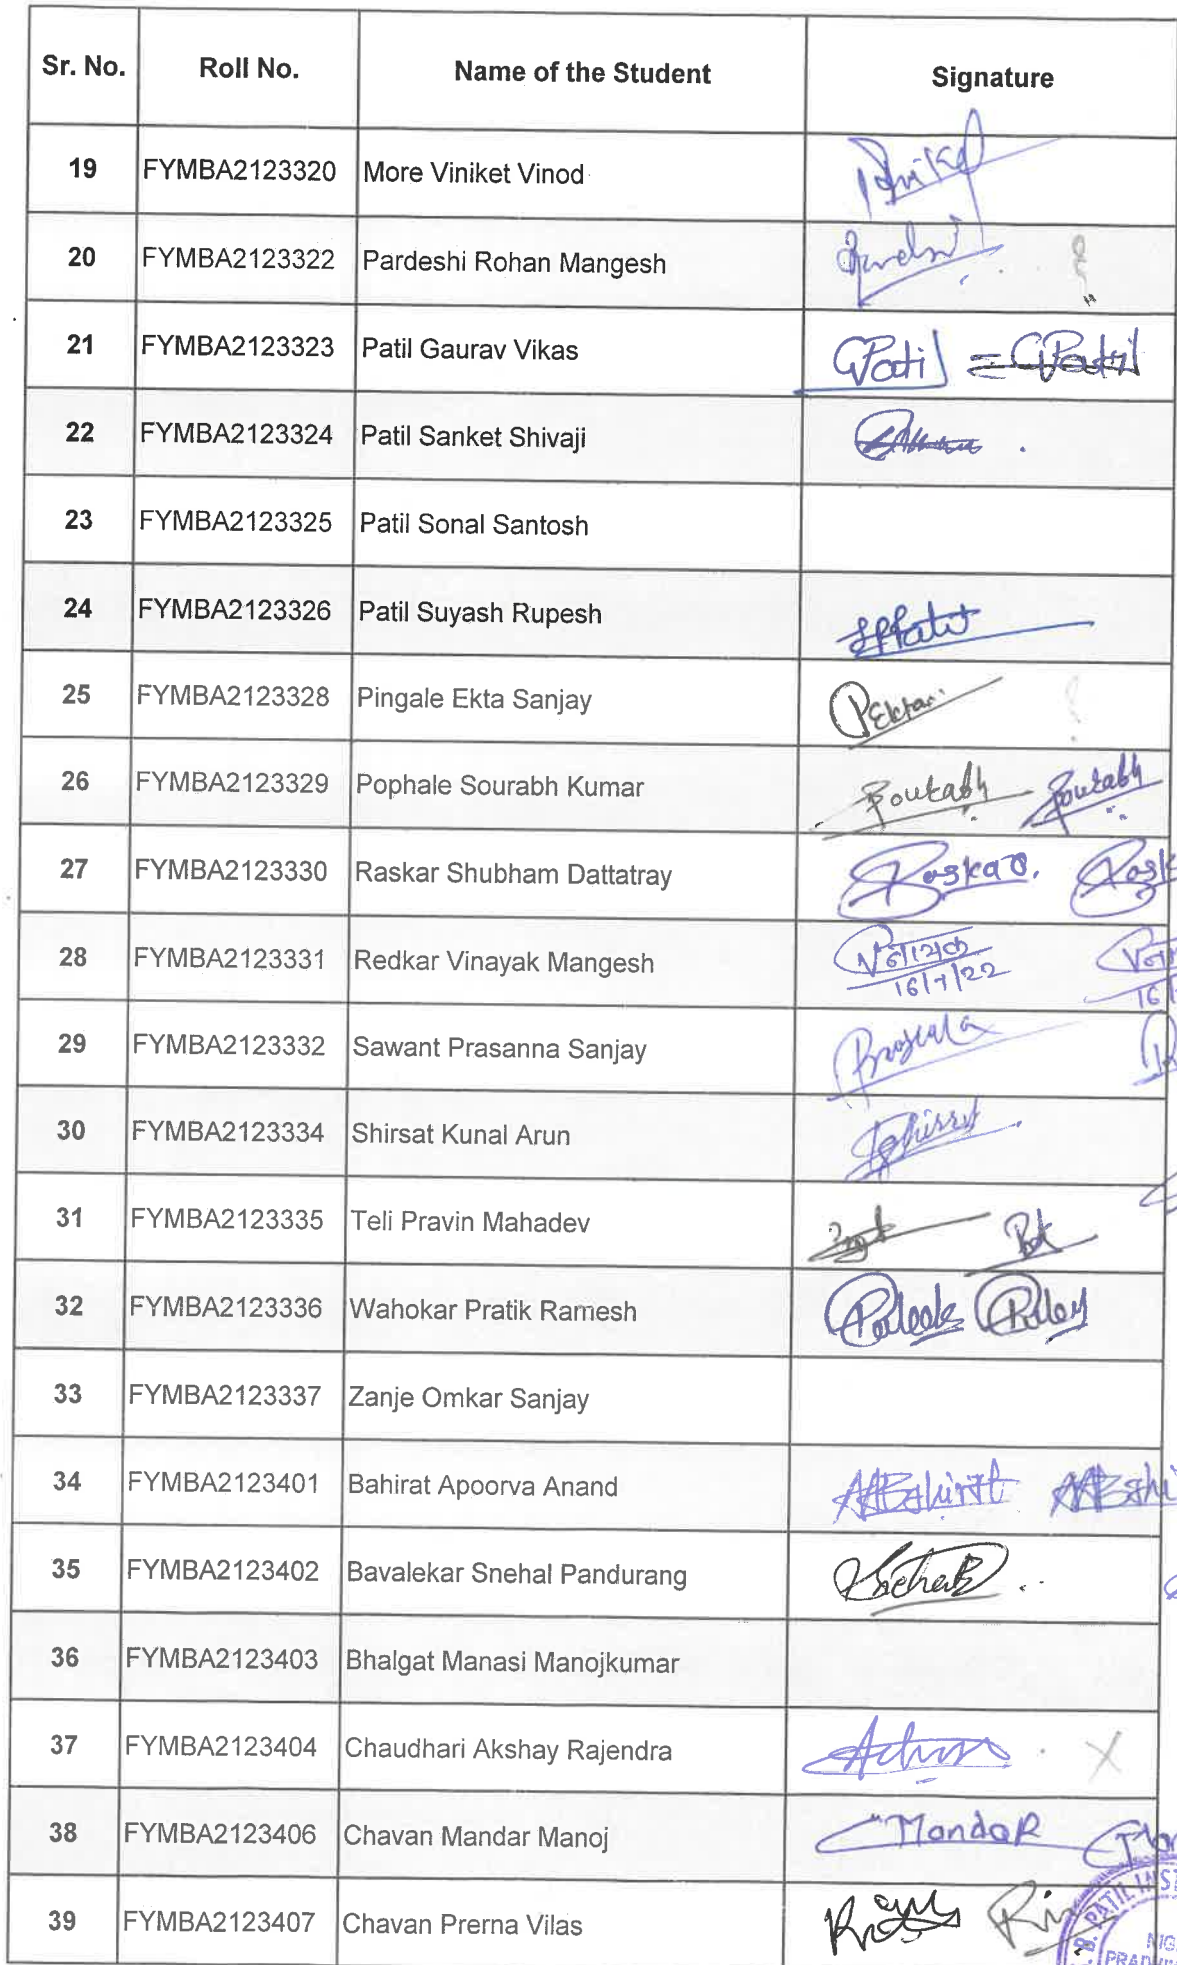 Sr. No. Roll No. Name of the Student Signature
19 FYMBA2123320 More Viniket Vinod
20 FYMBA2123322 Pardeshi Rohan Mangesh
21 FYMBA2123323 Patil Gaurav Vikas GPatil = GPatil
22 FYMBA2123324 Patil Sanket Shivaji
23 FYMBA2123325 Patil Sonal Santosh
24 FYMBA2123326 Patil Suyash Rupesh
25 FYMBA2123328 Pingale Ekta Sanjay
26 FYMBA2123329 Pophale Sourabh Kumar Sourabh Sourabh
27 FYMBA2123330 Raskar Shubham Dattatray Raskar.
28 FYMBA2123331 Redkar Vinayak Mangesh विनायक
16/7/22
29 FYMBA2123332 Sawant Prasanna Sanjay
30 FYMBA2123334 Shirsat Kunal Arun
31 FYMBA2123335 Teli Pravin Mahadev
32 FYMBA2123336 Wahokar Pratik Ramesh
33 FYMBA2123337 Zanje Omkar Sanjay
34 FYMBA2123401 Bahirat Apoorva Anand AABahirat
35 FYMBA2123402 Bavalekar Snehal Pandurang
36 FYMBA2123403 Bhalgat Manasi Manojkumar
37 FYMBA2123404 Chaudhari Akshay Rajendra X
38 FYMBA2123406 Chavan Mandar Manoj Mandar
39 FYMBA2123407 Chavan Prerna Vilas
B. PATIL